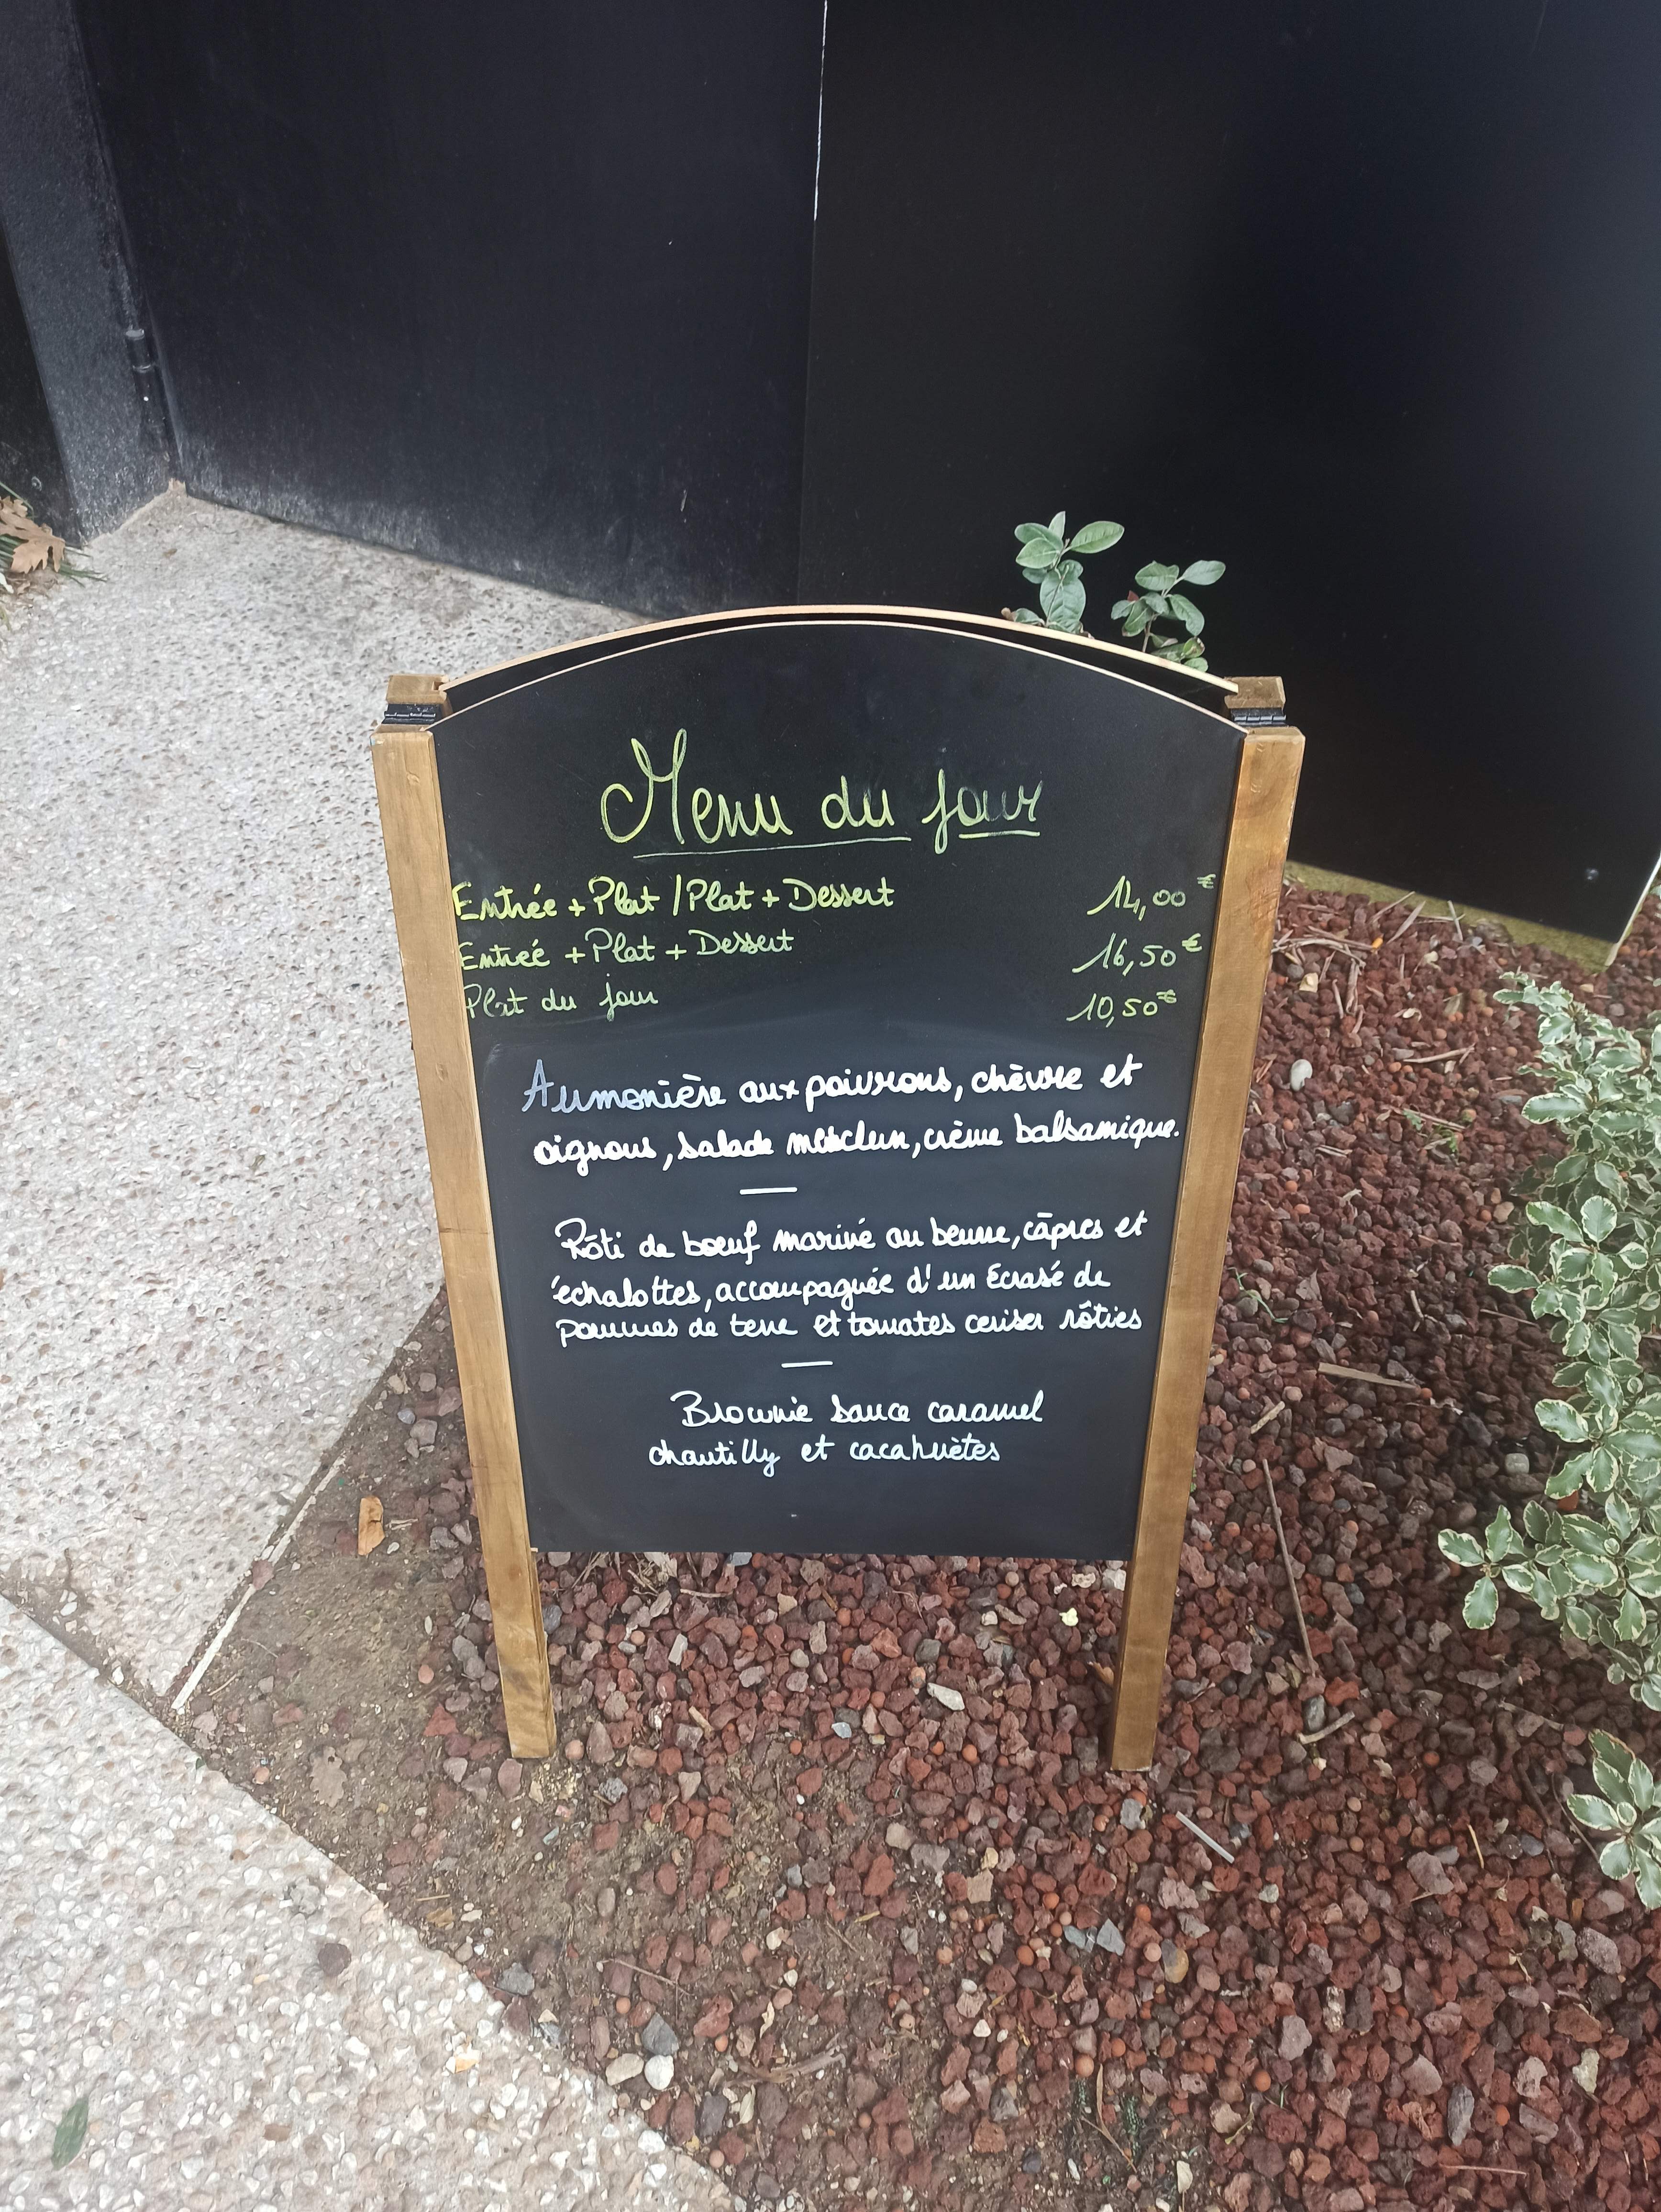 Menu du jour
Entrée + Plat / Plat + Dessert 14,00 €
Entrée + Plat + Dessert 16,50 €
Plat du jour 10,50 €
Aumonière aux poivrons, chèvre et
oignons, salade mesclun, crème balsamique.
Rôti de boeuf mariné au beurre, câpres et
échalottes, accompagnée d'un écrasé de
pommes de terre et tomates cerises rôties
Brownie sauce caramel
chantilly et cacahuètes